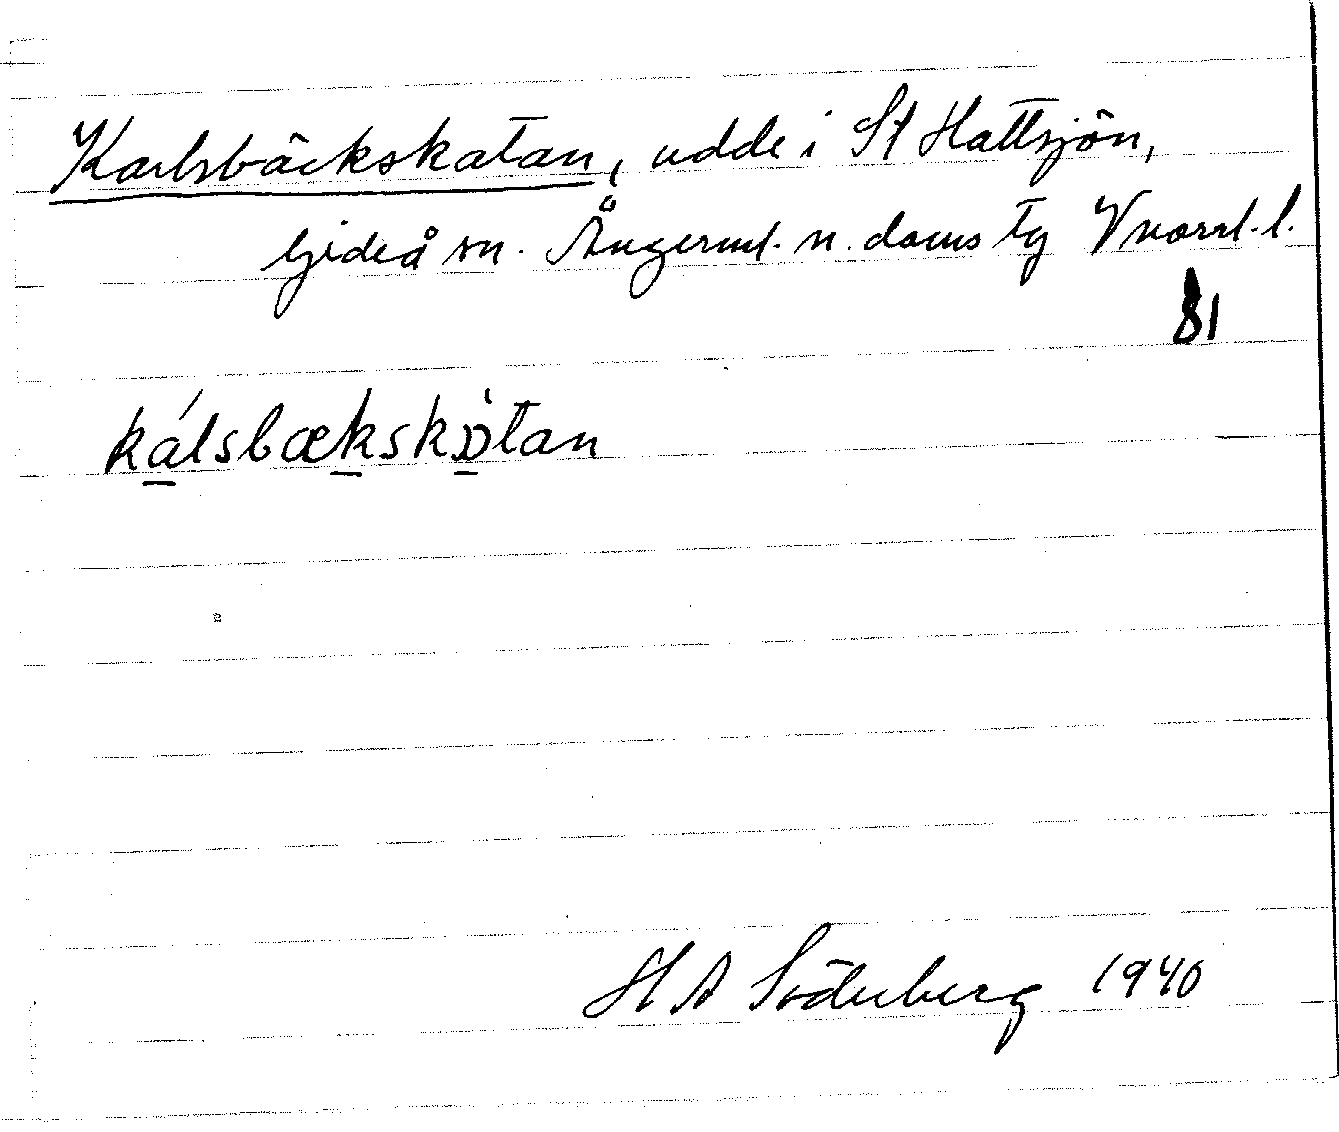 Karlsbäckskatan, udde i St Hattsjön,
Gideå sn. Ångerml. n. doms tg Vnorrl. l.
81
kálsbækskɒ̀tan
H A Söderberg 1940